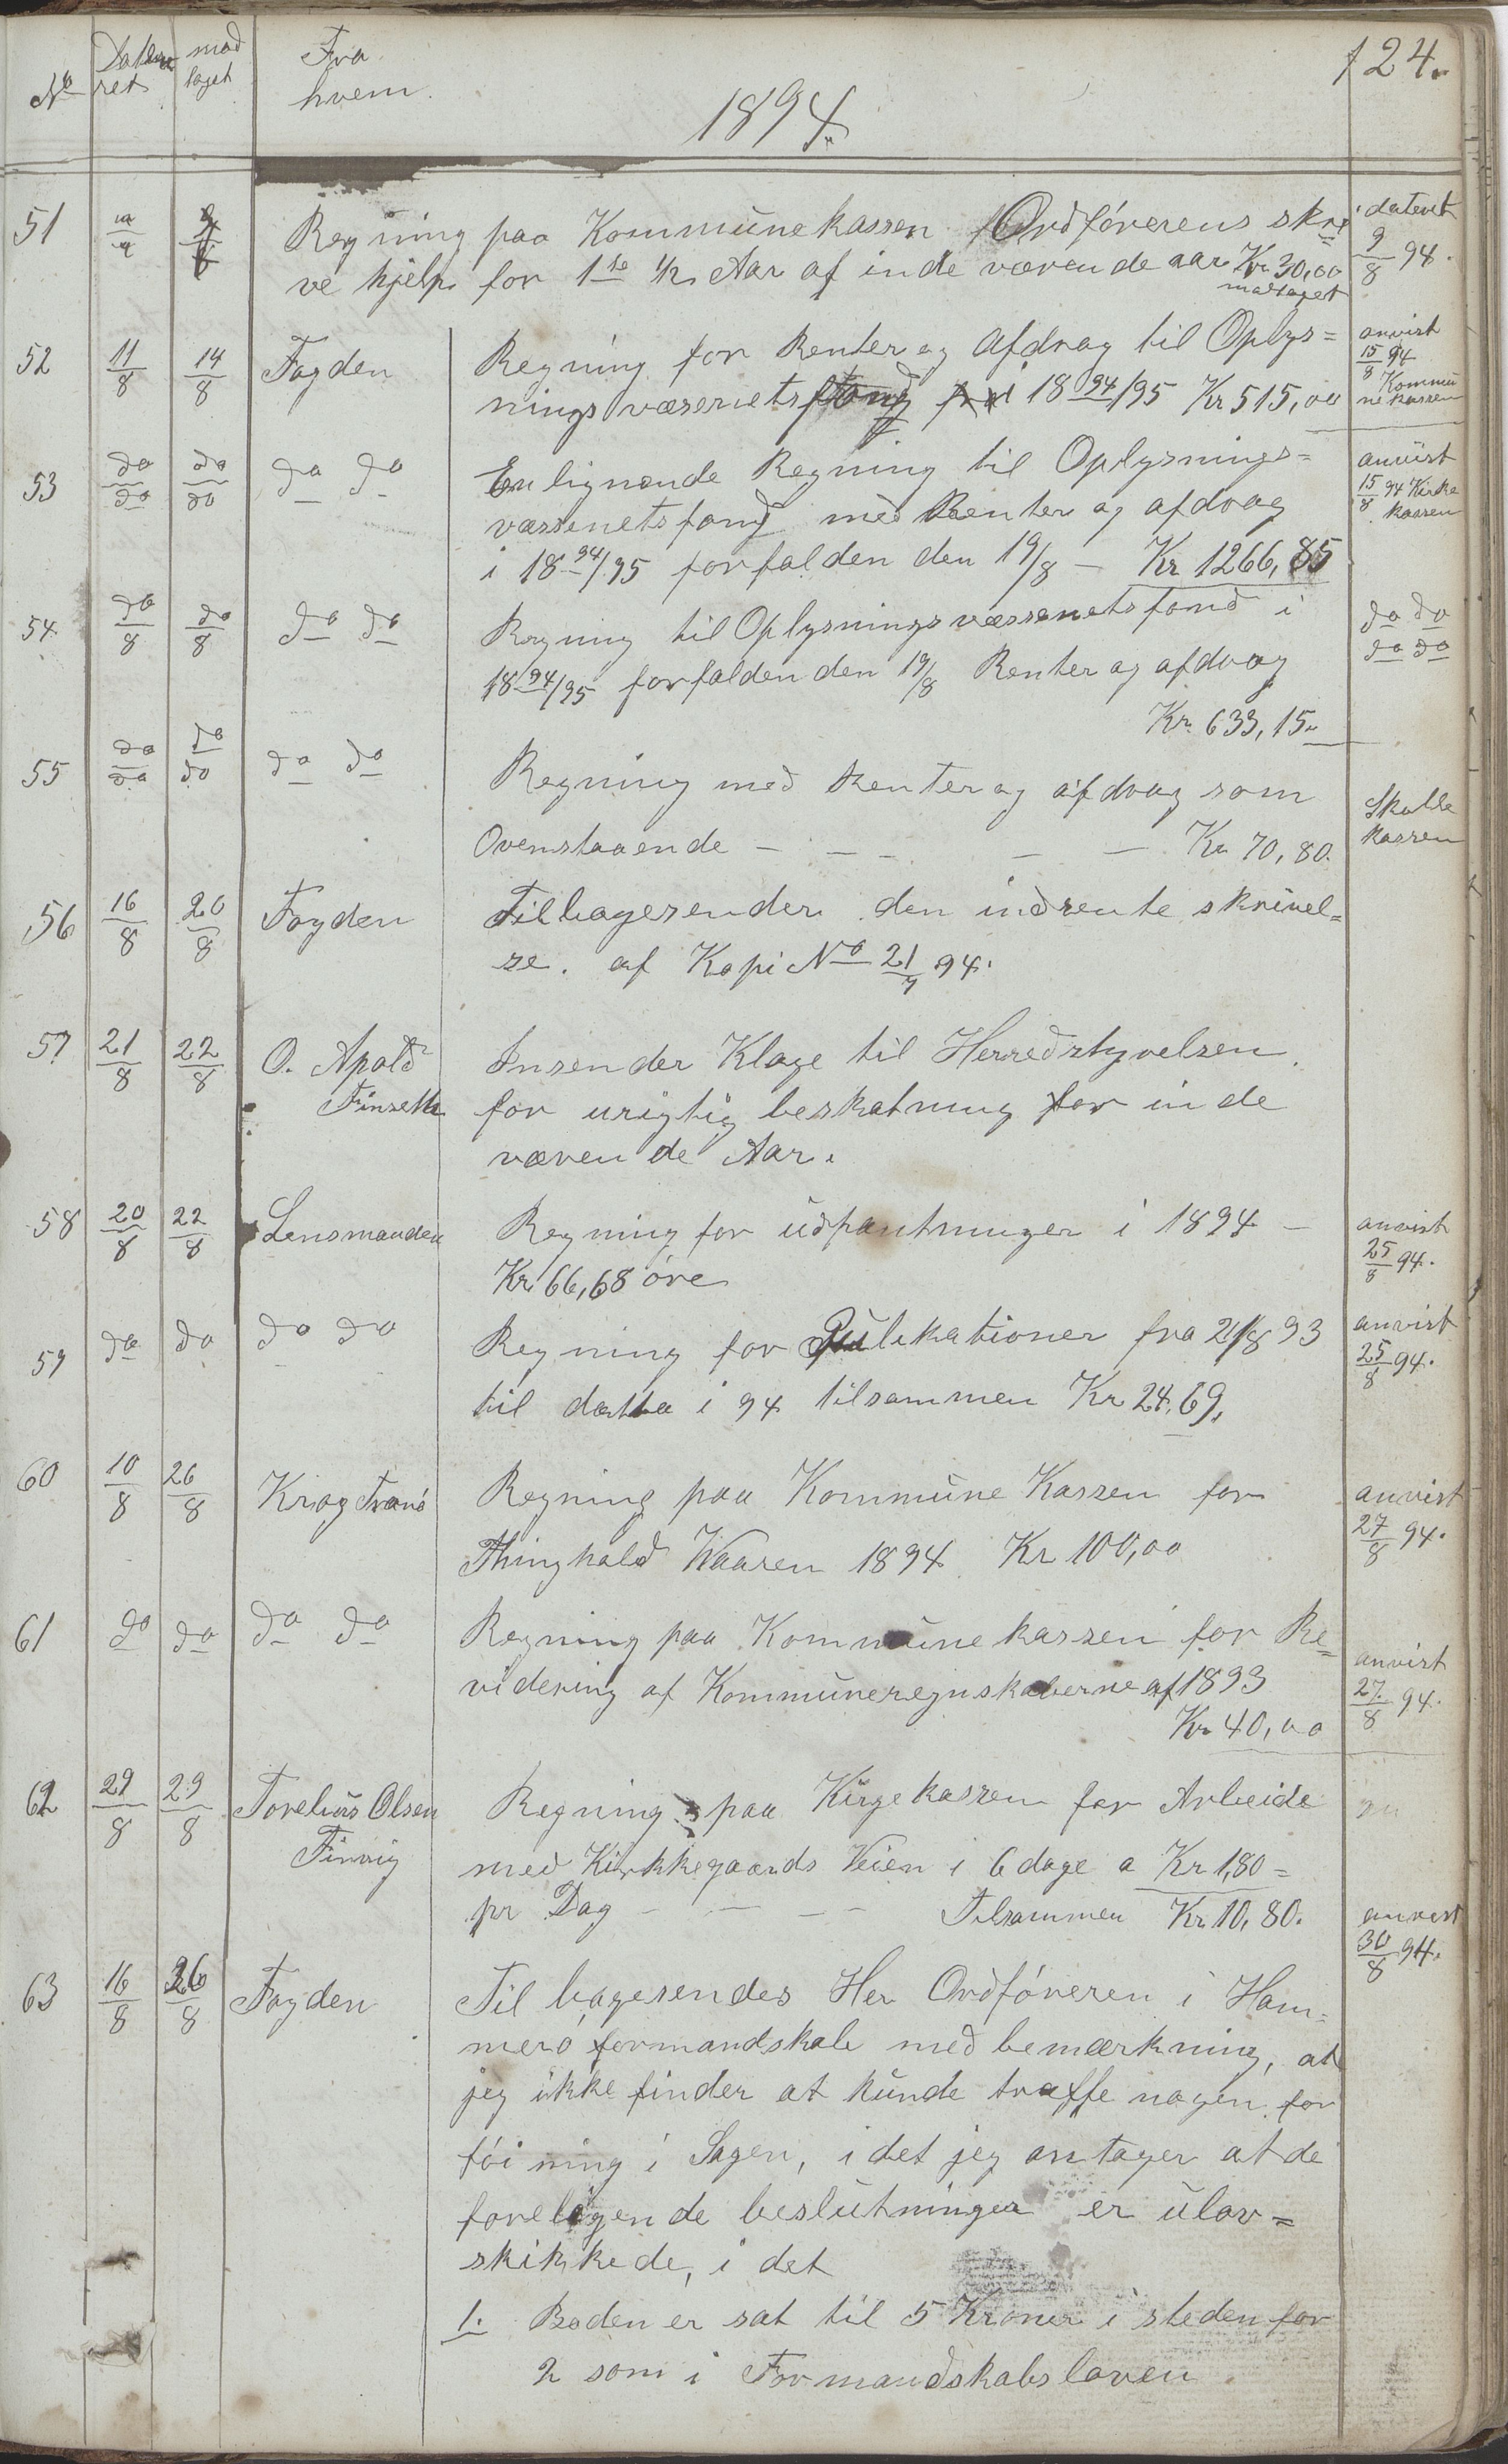 124.
No Dateret modtaget Fra hvem.
1894.
51 Regning paa Kommunekassen Ordførerens skre datert
ve hjelp for 1ste 1/2 Aar af inde værende aar Kr 30,00 9/8 94.
modtaget
52 11/8 14/8 Fogden Regning for Renter og Afdrag til Oplys= anvist 15/8 94
nings væsenets fond 18 94/95 Kr 515,00 Kommunekassen
53 do/do do/do do do En lignende Regning til Oplysnings= anviist
væssenets fond med Renter og afdrag 15/8 94 Kirke kassen
i 18 94/95 forfalden den 19/8 - Kr 1266,85
54 do/8 do/8 do do Regning til Oplysningsvæssenets fond i do do
18 94/95 forfalden den 19/8 Renter og afdrag do do
Kr. 633,15.
55 do/do do/do do do Regning med Renter og afdrag som Skolle
Ovenstaaende - - - - - Kr 70,80. kassen
56 16/8 20/8 Fogden Tilbagesender den indsente skrivel=
se. af Kopi No 21/7 94.
57 21/8 22/8 O. Apold Insender Klage til Herredstyrelsen.
Finseth for urigtig beskatning for inde
værende Aar.
58 20/8 22/8 Lensmanden Regning for udpantninger i 1894 - anvist
Kr. 66,68 øre 25/8 94.
59 do do do do Regning for Pulikationer fra 21/8 93 anvist
til datto i 94 tilsammen Kr 24,69. 25/8 94.
60 10/8 26/8 Krog Tranø Regning paa Kommune Kassen for anvist
Thinghold Vaaren 1894. Kr 100,00 27/8 94.
61 do do do do Regning paa Kommunekassen for Re= anvist
videring af Kommuneregnskaberne af 1893 27/8 94.
Kr 40,00
62 29/8 29/8 Torelius Olsen Regning paa Kirgekassen for Arbeide
Finvig med Kirkkegaards Veien i 6 dage a Kr 1,80=
pr Dag - - - - Tilsammen Kr 10,80. anvist
30/8 94.
63 16/8 26/8 Fogden Tilbagesendes Her Ordføreren i Ham=
merø formandskab med bemærkning, at
jeg ikke finder at kunde træffe nogen for
føi ning i Sagen, i det jeg antager at de
foreligende beslutninger er ulov=
skikkede, i det
1. Boden er sat til 5 Kroner i steden for
2 som i Formandskabsloven